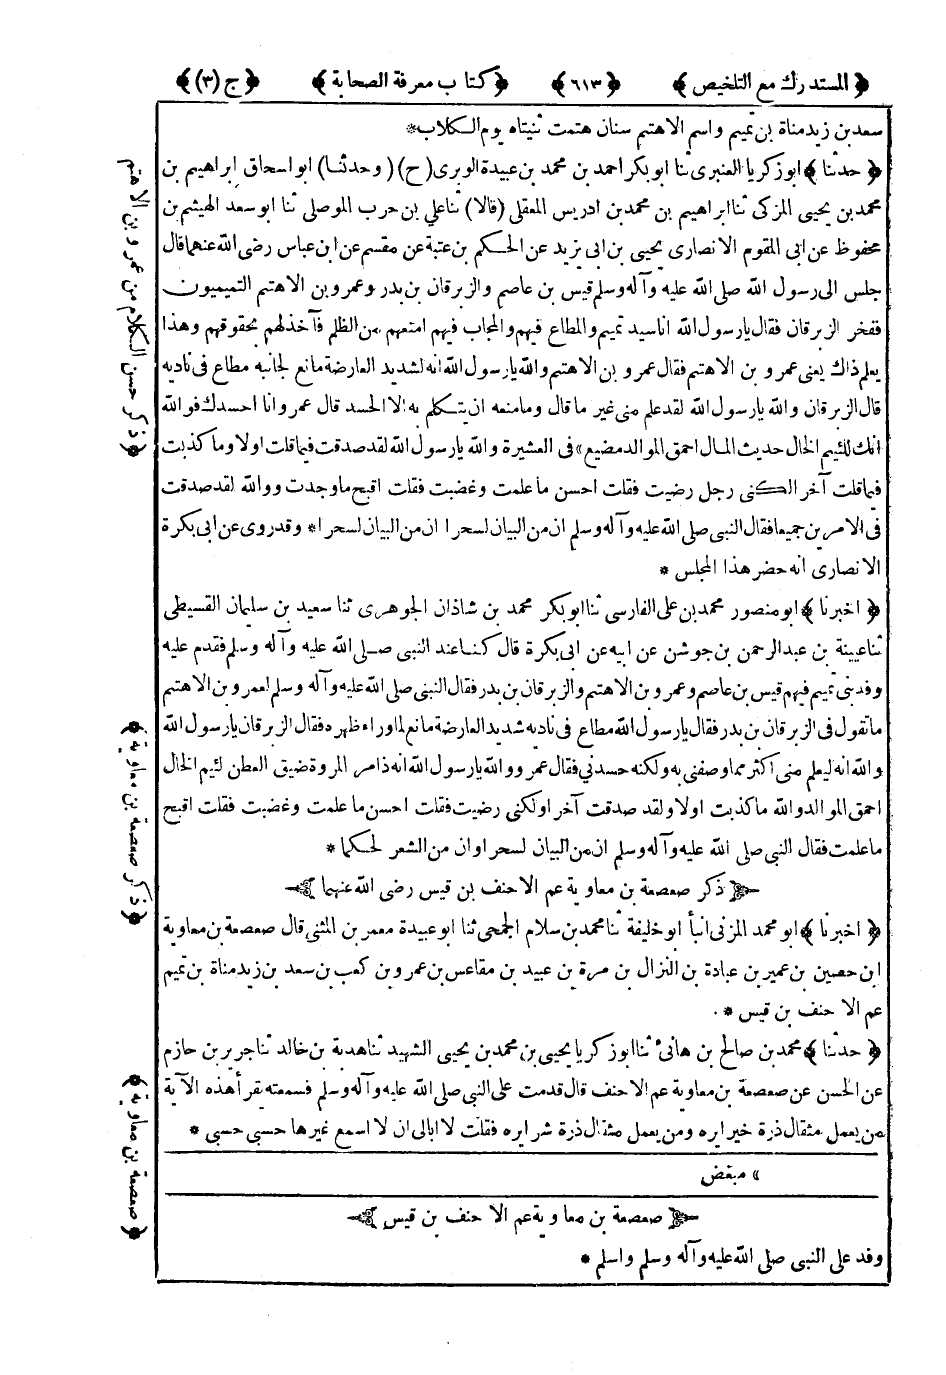 ﴿ المستدرك مع التلخيص ﴾ ﴿ ٦١٣ ﴾ ﴿ كتاب معرفة الصحابة ﴾ ﴿ ج (٣) ﴾
سعد بن زيد مناة بن تميم واسم الاهتم سنان هتمت ثنيتاه يوم الكلاب*
﴿ حدثنا ﴾ ابو زكريا العنبرى ثنا ابو بكر احمد بن محمد بن عبيدة الوبرى (ح) (وحدثنا) ابو اسحاق ابراهيم بن
محمد بن يحيى المزكى ثنا ابراهيم بن محمد بن ادريس المعقلى (قالا) ثنا على بن حرب الموصلى ثنا ابو سعد الهيثم بن
محفوظ عن ابى المقوم الانصارى يحيى بن ابى يزيد عن الحكم بن عتبة عن مقسم عن ابن عباس رضى الله عنهما قال
جلس الى رسول الله صلى الله عليه وآله وسلم قيس بن عاصم والزبرقان بن بدر وعمرو بن الاهتم التميميون
ففخر الزبرقان فقال يا رسول الله انا سيد تميم والمطاع فيهم والمجاب فيهم امنعهم من الظلم فآخذ لهم بحقوقهم وهذا
يعلم ذاك يعنى عمرو بن الاهتم فقال عمرو بن الاهتم والله يا رسول الله انه لشديد العارضة مانع لجانبه مطاع فى ناديه
قال الزبرقان والله يا رسول الله لقد علم منى غير ما قال وما منعه ان يتكلم به الا الحسد قال عمرو انا احسدك فوالله
انك للئيم الخال حديث المال احمق الموالد مضيع» فى العشيرة والله يا رسول الله لقد صدقت فيما قلت اولا وما كذبت
فيما قلت آخر الكنى رجل رضيت فقلت احسن ما علمت وغضبت فقلت اقبح ما وجدت ووالله لقد صدقت
فى الامرين جميعا فقال النبى صلى الله عليه وآله وسلم ان من البيان لسحرا ان من البيان لسحرا* وقد روى عن ابى بكرة
الانصارى انه حضر هذا المجلس *
﴿ اخبرنا ﴾ ابو منصور محمد بن على الفارسى ثنا ابو بكر محمد بن شاذان الجوهرى ثنا سعيد بن سليمان القسيطى
ثنا عيينة بن عبد الرحمن بن جوشن عن ابيه عن ابى بكرة قال كنا عند النبى صلى الله عليه وآله وسلم فقدم عليه
وفد بنى تميم فيهم قيس بن عاصم وعمرو بن الاهتم والزبرقان بن بدر فقال النبى صلى الله عليه وآله وسلم لعمرو بن الاهتم
ما تقول فى الزبرقان بن بدر فقال يا رسول الله مطاع فى ناديه شديد العارضة مانع لما وراء ظهره فقال الزبرقان يا رسول الله
والله انه ليعلم منى اكثر مما وصفنى به ولكنه حسدنى فقال عمرو والله يا رسول الله انه ذامر المروة ضيق العطن لئيم الخال
احمق الموالد والله ما كذبت اولا ولقد صدقت آخر اولكنى رضيت فقلت احسن ما علمت وغضبت فقلت اقبح
ما علمت فقال النبى صلى الله عليه وآله وسلم ان من البيان لسحرا وان من الشعر لحكما *
ذكر صعصعة بن معاوية عم الاحنف بن قيس رضى الله عنهما
﴿ اخبرنا ﴾ ابو محمد المزنى انبأ ابو خليفة ثنا محمد بن سلام الجمحى ثنا ابو عبيدة معمر بن المثنى قال صعصعة بن معاوية
ابن حصين بن عمير بن عبادة بن النزال بن مرة بن عبيد بن مقاعس بن عمرو بن كعب بن سعد بن زيد مناة بن تميم
عم الاحنف بن قيس *
﴿ حدثنا ﴾ محمد بن صالح بن هانئ ثنا ابو زكريا يحيى بن محمد بن يحيى الشهيد ثنا هدبة بن خالد ثنا جرير بن حازم
عن الحسن عن صعصعة بن معاوية عم الاحنف قال قدمت على النبى صلى الله عليه وآله وسلم فسمعته يقرأ هذه الآية
من يعمل مثقال ذرة خيرا يره ومن يعمل مثقال ذرة شرا يره فقلت لا ابالى ان لا اسمع غيرها حسبى حسبى *
» مبغض
صعصعة بن معاوية عم الاحنف بن قيس
وفد على النبى صلى الله عليه وآله وسلم واسلم *
﴿ ذكر حسن الكلام من عمرو بن الاهتم
﴿ ذكر صعصعة بن معاوية ﴾
﴿ صعصعة بن معاوية ﴾